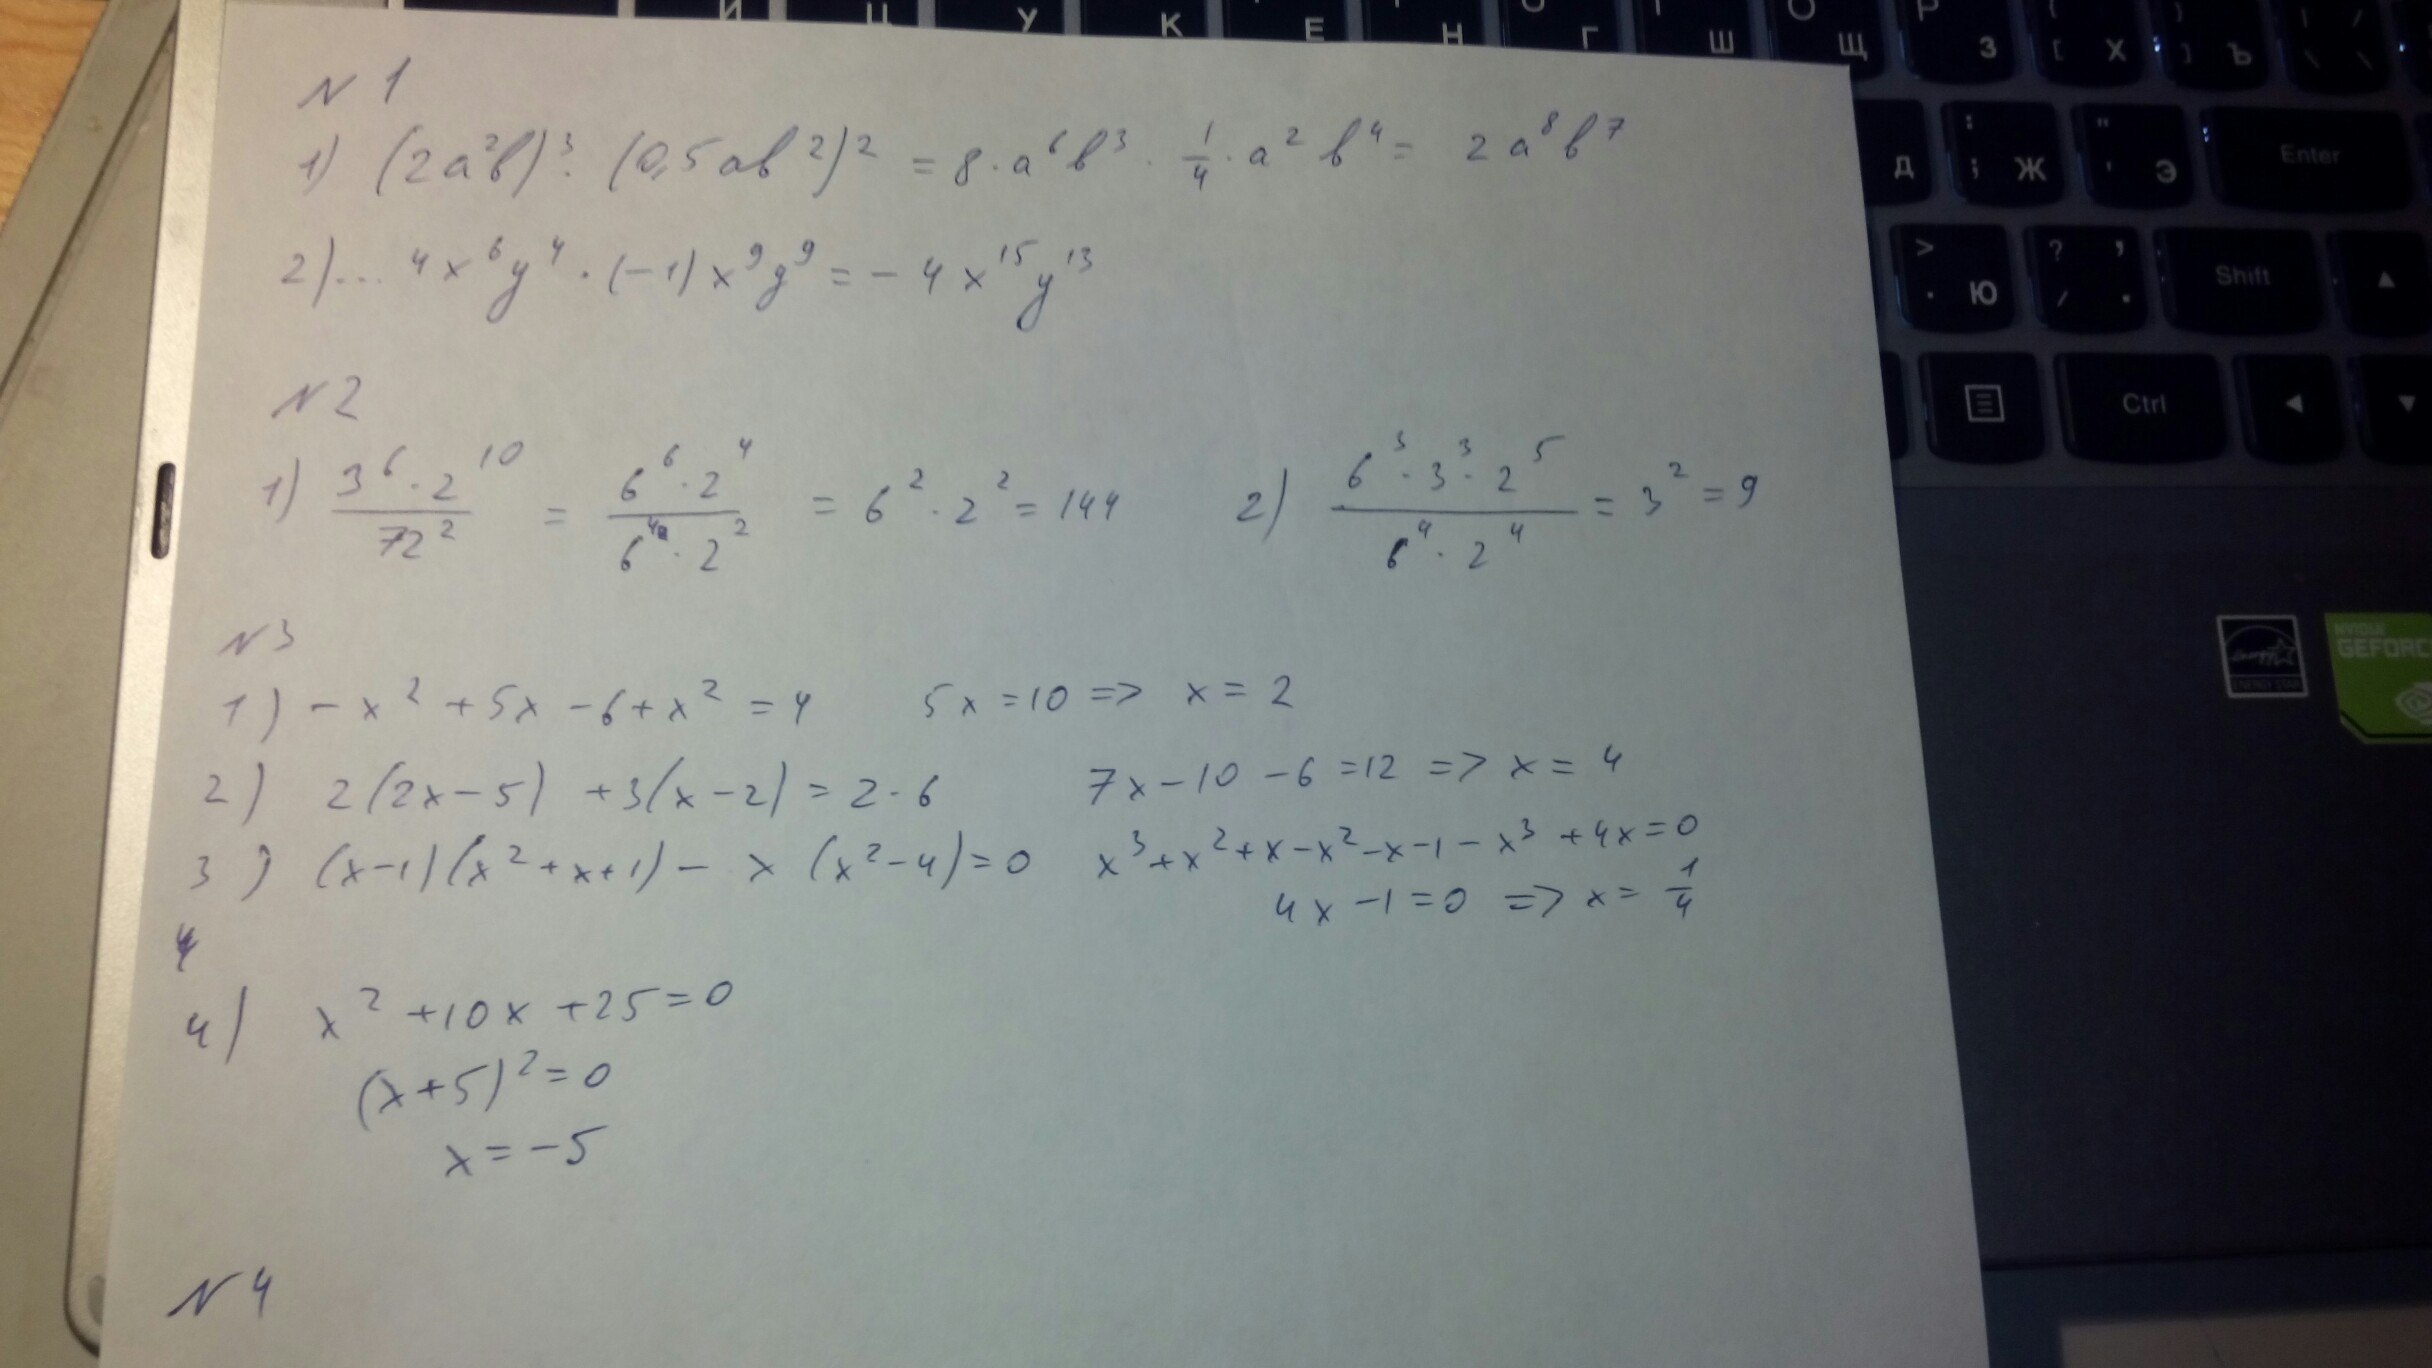 Й Ц У К Е Н Г Ш Щ З Х Ъ
Д Ж Э Enter
Ю Shift
Ctrl
NVIDIA
GEFORC
N 1
1) (2a²b)³ · (0,5ab²)² = 8 · a⁶b³ · 1/4 · a² b⁴ = 2a⁸b⁷
2) ... 4x⁶y⁴ · (-1)x⁹y⁹ = - 4x¹⁵y¹³
N 2
1) 3⁶ · 2¹⁰ / 72² = 6⁶ · 2⁴ / 6⁴ · 2² = 6² · 2² = 144 2) 6³ · 3³ · 2⁵ / 6⁴ · 2⁴ = 3² = 9
N 3
1) - x² + 5x - 6 + x² = 4 5x = 10 => x = 2
2) 2(2x - 5) + 3(x - 2) = 2 · 6 7x - 10 - 6 = 12 => x = 4
3) (x - 1)(x² + x + 1) - x (x² - 4) = 0 x³ + x² + x - x² - x - 1 - x³ + 4x = 0
4x - 1 = 0 => x = 1/4
4
4) x² + 10x + 25 = 0
(x + 5)² = 0
x = -5
N 4